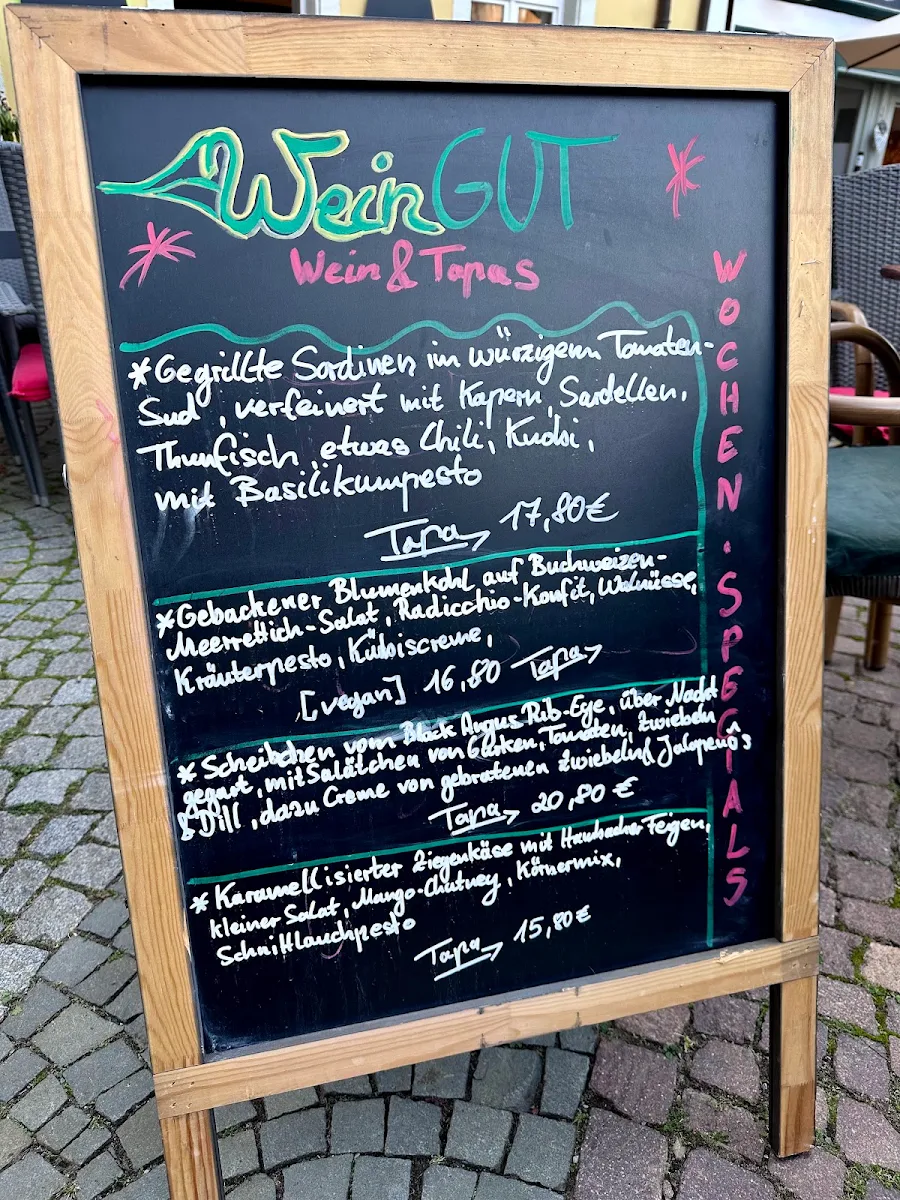 WeinGUT
Wein & Tapas
WOCHEN · SPECIALS
* Gegrillte Sardinen im würzigem Tomaten-
Sud, verfeinert mit Kapern, Sardellen,
Thunfisch, etwas Chili, Knobi,
mit Basilikumpesto
Tapa 17,80 €
* Gebackener Blumenkohl auf Buchweizen-
Meerrettich-Salat, Radicchio-Konfit, Walnüsse,
Kräuterpesto, Kürbiscreme,
[vegan] 16,80 Tapa
* Scheibchen vom Black Angus Rib-Eye, über Nacht
gegart, mit Salätchen von Gurken, Tomaten, Zwiebeln
& Dill, dazu Creme von gebratenen Zwiebeln & Jalapeno's
Tapa 20,80 €
* Karamellisierter Ziegenkäse mit Hambacher Feigen,
kleiner Salat, Mango-Chutney, Körnermix,
Schnittlauchpesto
Tapa 15,80 €